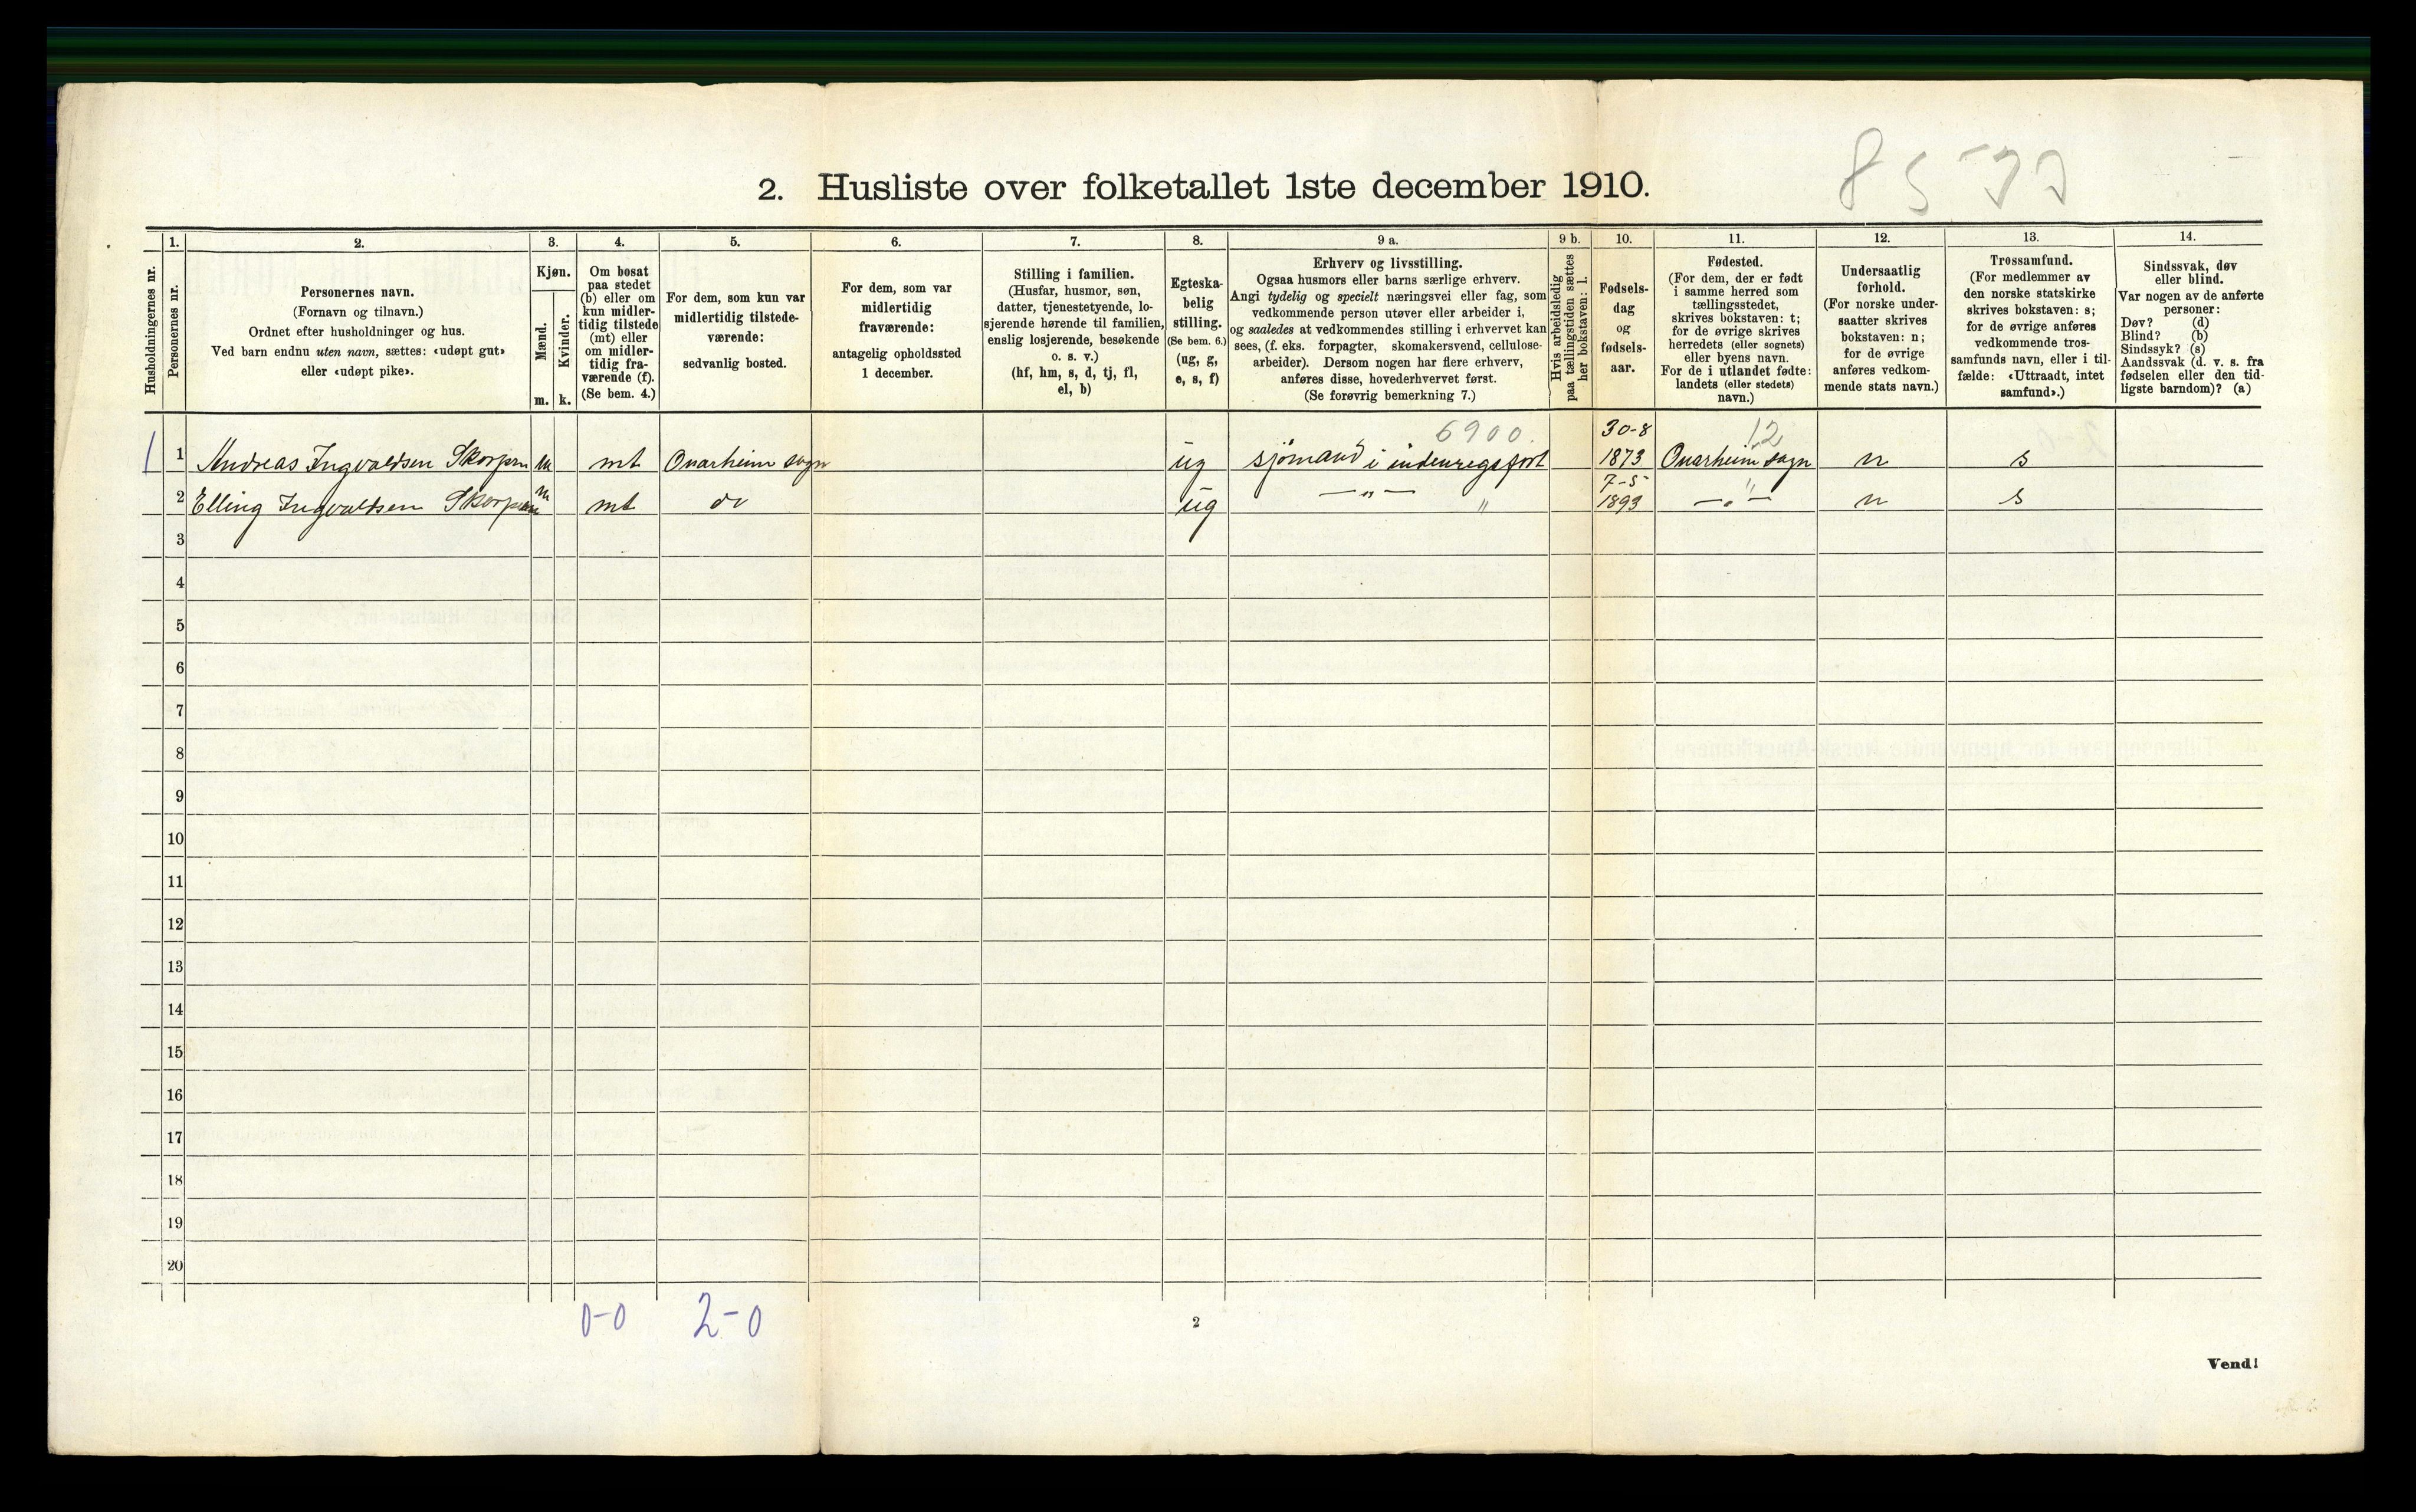 8533
2. Husliste over folketallet 1ste december 1910.
1. 2. 3. 4. 5. 6. 7. 8. 9 a. 9 b. 10. 11. 12. 13. 14.
Husholdningernes nr.
Personernes nr.
Personernes navn.
(Fornavn og tilnavn.)
Ordnet efter husholdninger og hus.
Ved barn endnu uten navn, sættes: «udøpt gut»
eller «udøpt pike».
Kjøn.
Mænd.
Kvinder.
m. k.
Om bosat
paa stedet
(b) eller om
kun midler-
tidig tilstede
(mt) eller
om midler-
tidig fra-
værende (f).
(Se bem. 4.)
For dem, som kun var
midlertidig tilstede-
værende:
sedvanlig bosted.
For dem, som var
midlertidig
fraværende:
antagelig opholdssted
1 december.
Stilling i familien.
(Husfar, husmor, søn,
datter, tjenestetyende, lo-
sjerende hørende til familien,
enslig losjerende, besøkende
o. s. v.)
(hf, hm, s, d, tj, fl,
el, b)
Egteska-
belig
stilling.
(Se bem. 6.)
(ug, g,
e, s, f)
Erhverv og livsstilling.
Ogsaa husmors eller barns særlige erhverv.
Angi tydelig og specielt næringsvei eller fag, som
vedkommende person utøver eller arbeider i,
og saaledes at vedkommendes stilling i erhvervet kan
sees, (f. eks. forpagter, skomakersvend, cellulose-
arbeider). Dersom nogen har flere erhverv,
anføres disse, hovederhvervet først.
(Se forøvrig bemerkning 7.)
Hvis arbeidsledig
paa tællingstiden sættes
her bokstaven: l.
Fødsels-
dag
og
fødsels-
aar.
Fødested.
(For dem, der er født
i samme herred som
tællingsstedet,
skrives bokstaven: t;
for de øvrige skrives
herredets (eller sognets)
eller byens navn.
For de i utlandet fødte:
landets (eller stedets)
navn.)
Undersaatlig
forhold.
(For norske under-
saatter skrives
bokstaven: n;
for de øvrige
anføres vedkom-
mende stats navn.)
Trossamfund.
(For medlemmer av
den norske statskirke
skrives bokstaven: s;
for de øvrige anføres
vedkommende tros-
samfunds navn, eller i til-
fælde: «Uttraadt, intet
samfund».)
Sindssvak, døv
eller blind.
Var nogen av de anførte
personer:
Døv? (d)
Blind? (b)
Sindssyk? (s)
Aandssvak (d. v. s. fra
fødselen eller den tid-
ligste barndom)? (a)
6900. 30-8 12
1 1 Andreas Ingvaldsen Skorpen m mt Onarheim sogn ug sjømand i indenrigsfart 1873 Onarheim sogn n s
7-5
2 Elling Ingvaldsen Skorpen m mt do ug —"— " 1893 —"— n s
3
4
5
6
7
8
9
10
11
12
13
14
15
16
17
18
19
20
0-0 2-0
2
Vend!